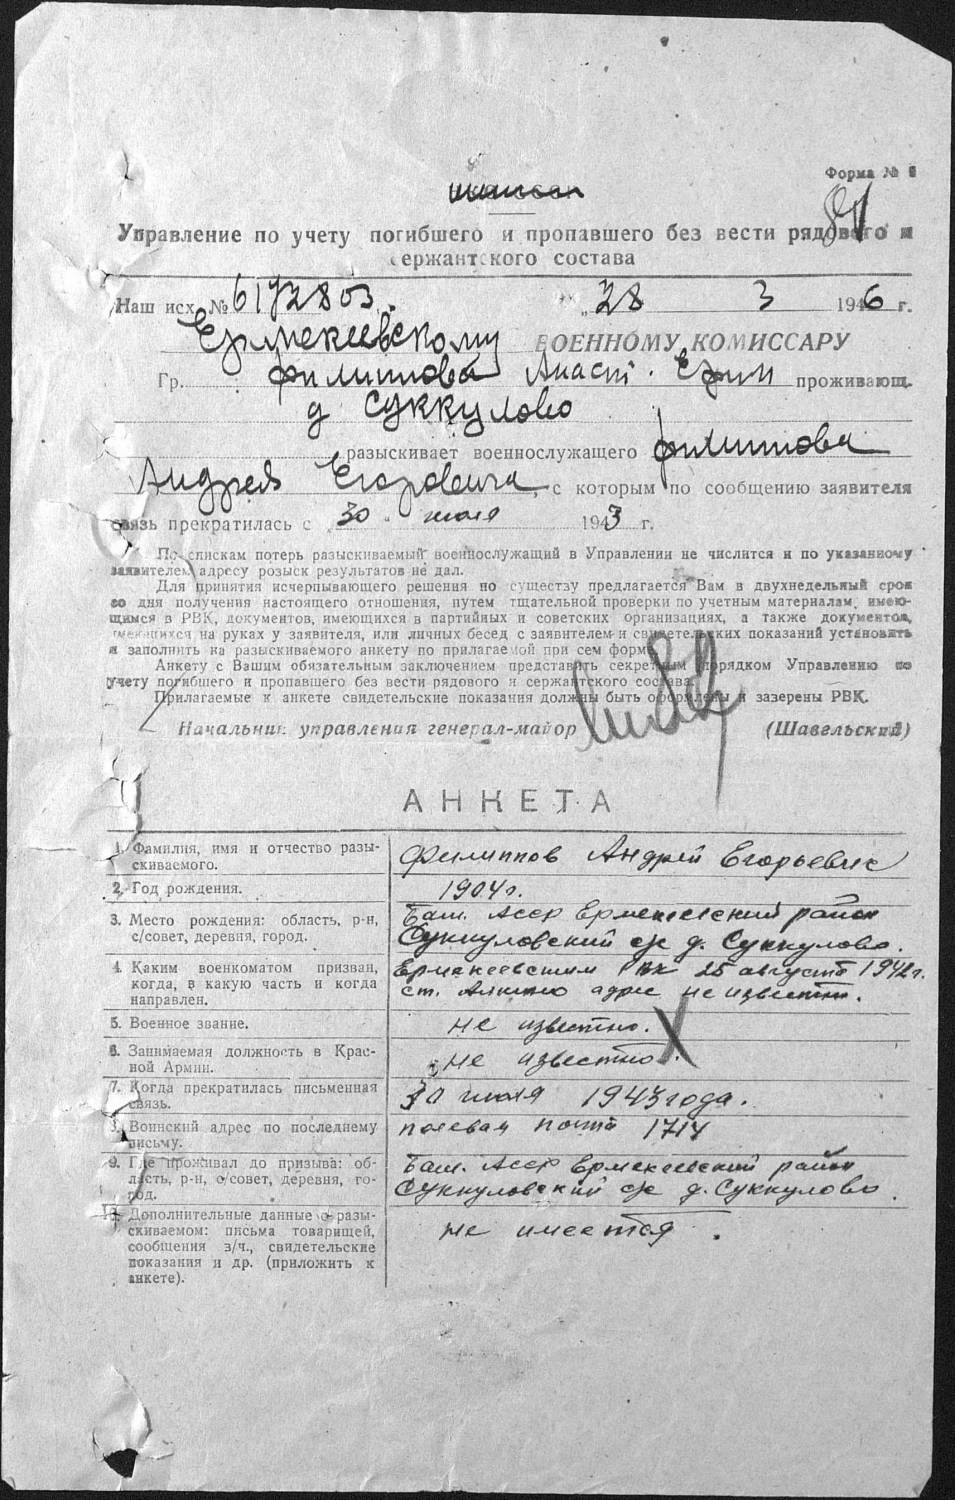 Форма №
81
Управление по учету погибшего и пропавшего без вести рядового и
сержантского состава
Наш исх. № 6172803. „28 3 1946 г.
Ермекеевскому ВОЕННОМУ КОМИССАРУ
Гр. Филиппова Анаст. Ефим проживающ.
д Суккулово
разыскивает военнослужащего Филиппова
Андрея Егоровича, с которым по сообщению заявителя
связь прекратилась с 30 " июля 1943 г.
По спискам потерь разыскиваемый военнослужащий в Управлении не числится и по указанному
заявителем адресу розыск результатов не дал.
Для принятия исчерпывающего решения по существу предлагается Вам в двухнедельный срок
со дня получения настоящего отношения, путем тщательной проверки по учетным материалам, имею-
щимся в РВК, документов, имеющихся в партийных и советских организациях, а также документов,
имеющихся на руках у заявителя, или личных бесед с заявителем и свидетельских показаний установить
и заполнить на разыскиваемого анкету по прилагаемой при сем форме.
Анкету с Вашим обязательным заключением представить секретным порядком Управлению по
учету погибшего и пропавшего без вести рядового и сержантского состава.
Прилагаемые к анкете свидетельские показания должны быть оформлены и заверены РВК.
Начальник управления генерал-майор (Шавельский)
АНКЕТА
1. Фамилия, имя и отчество разы-
скиваемого.
Филиппов Андрей Егорьевич
2. Год рождения.
1904 г.
3. Место рождения: область, р-н,
с/совет, деревня, город.
Баш. Асср Ермекеевский район
Суккуловский с/с д. Суккулово.
4. Каким военкоматом призван,
когда, в какую часть и когда
направлен.
Ермекеевским РВК 25 августа 1942 г.
ст. Аксаково адрес не известен.
5. Военное звание.
не известно.
6. Занимаемая должность в Крас-
ной Армии.
не известно.
7. Когда прекратилась письменная
связь.
30 июля 1943 года.
8. Воинский адрес по последнему
письму.
полевая почта 1714
9. Где проживал до призыва: об-
ласть, р-н, с/совет, деревня, го-
род.
Баш. Асср Ермекеевский район
Суккуловский с/с д. Суккулово.
10. Дополнительные данные о разы-
скиваемом: письма товарищей,
сообщения в/ч., свидетельские
показания и др. (приложить к
анкете).
не имеется.